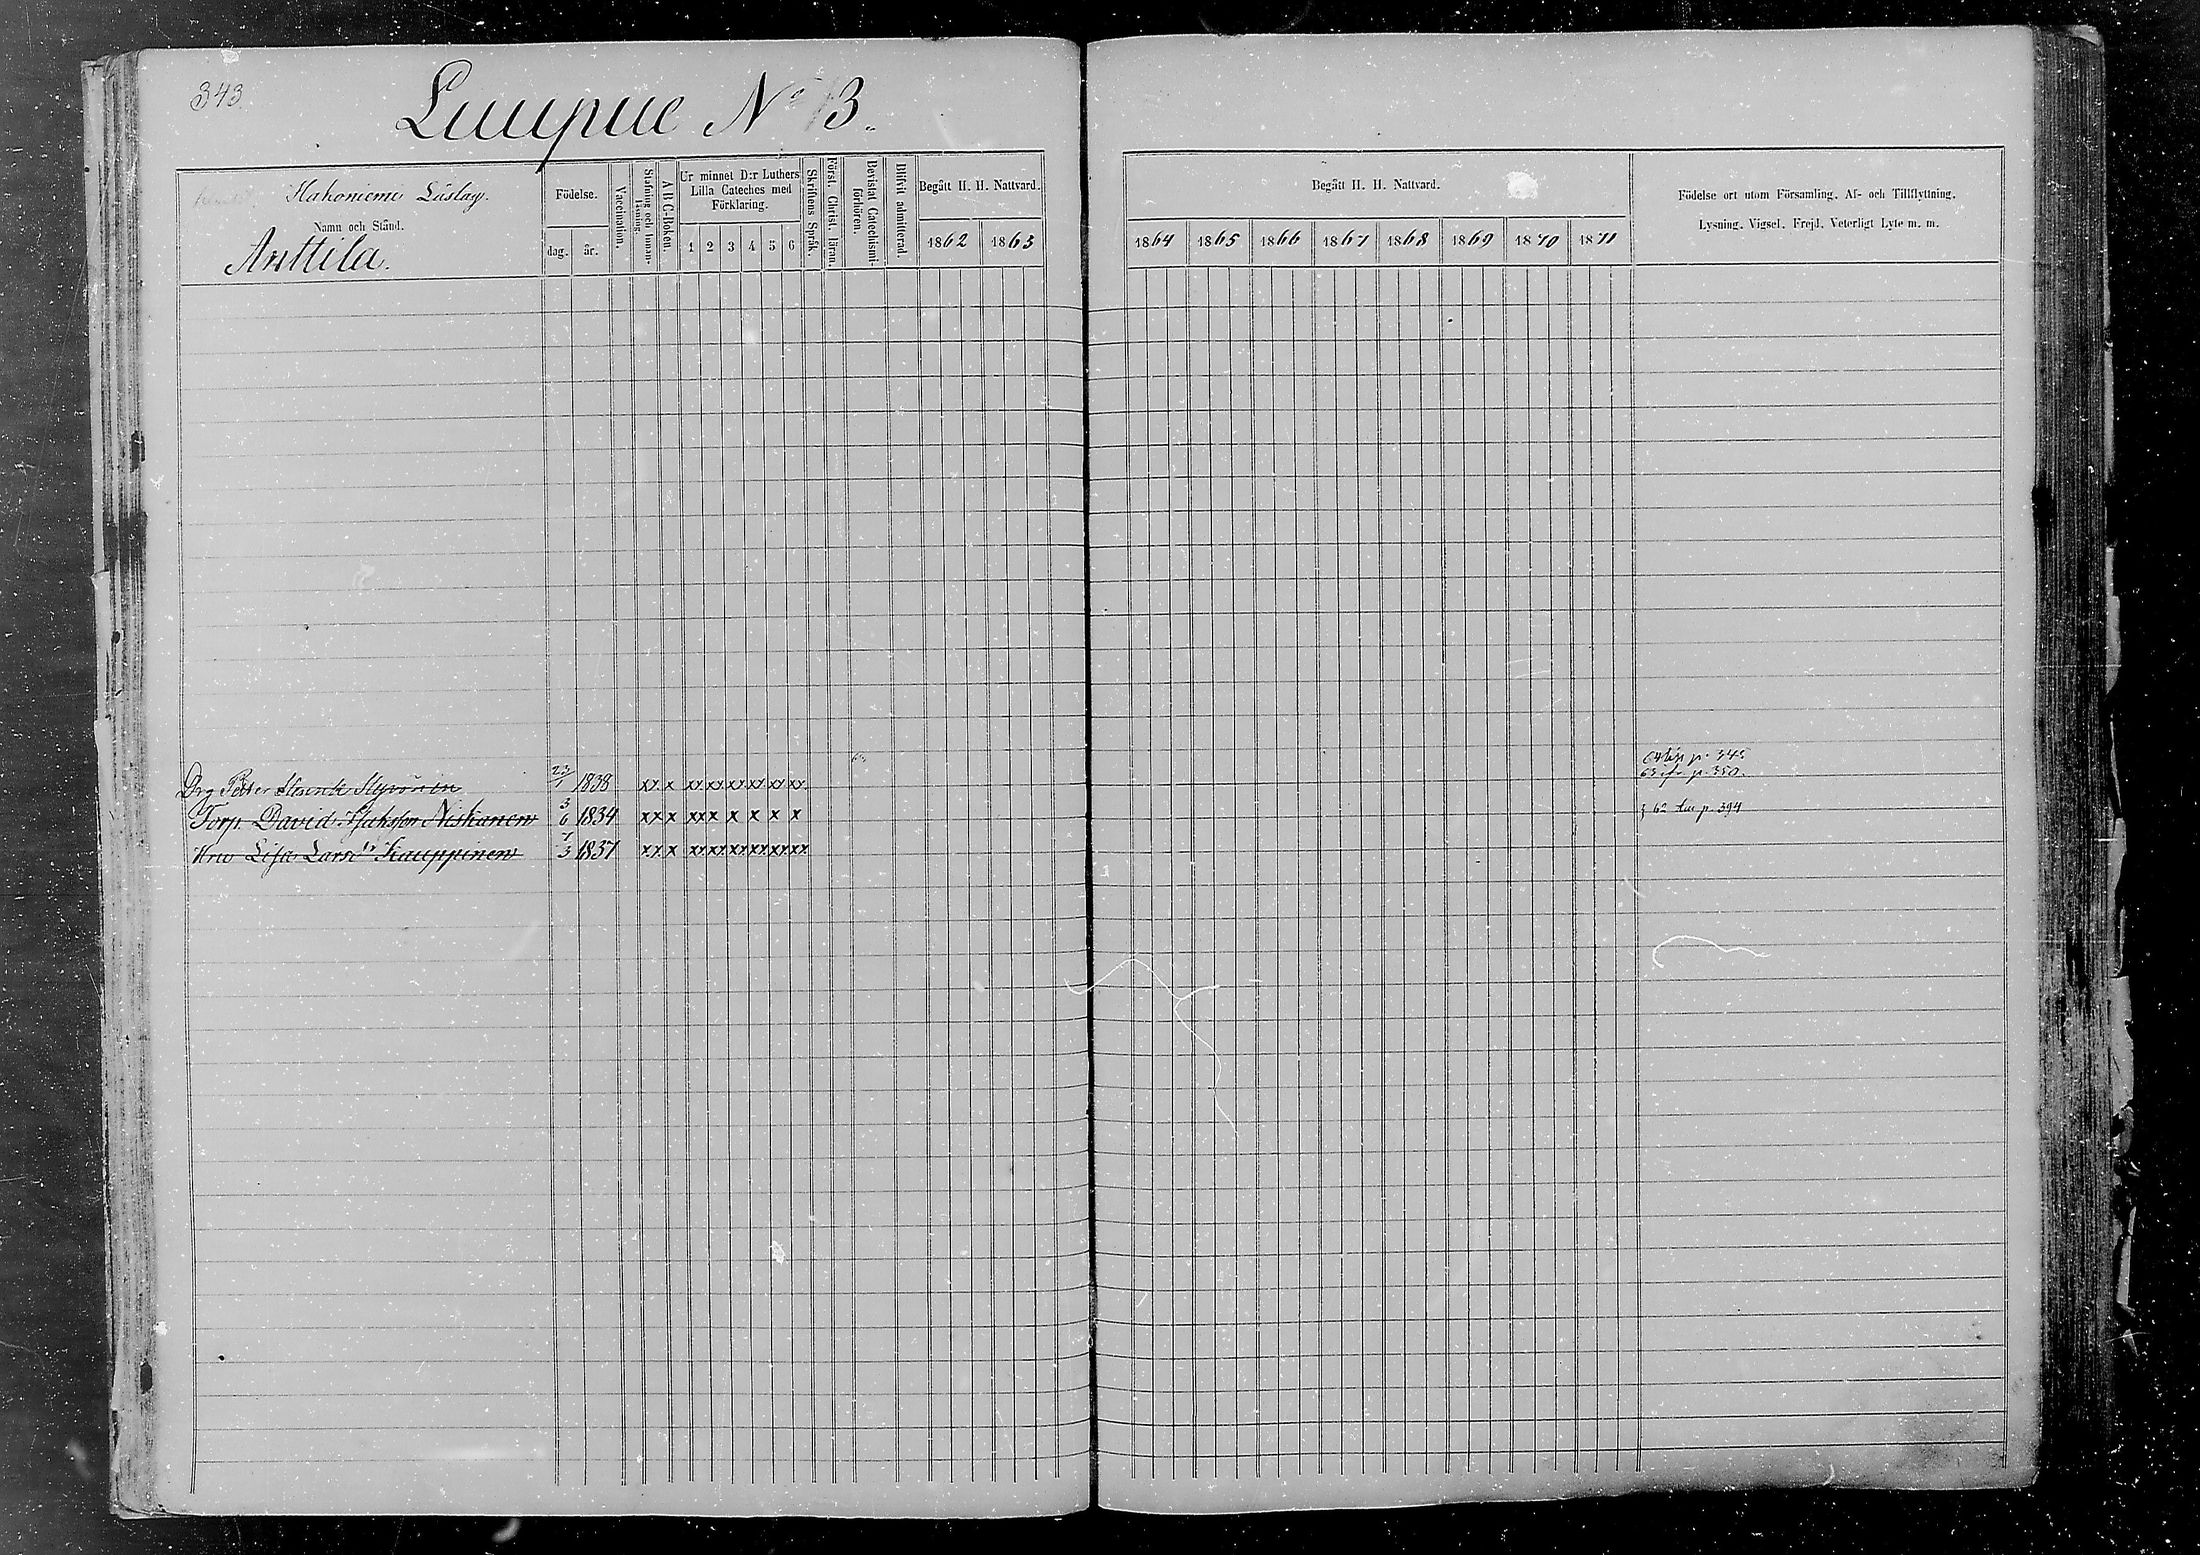 343.
Luupue No 3.
Hakoniemi Läslag.
Namn och Stånd.
Anttila.
Födelse.
dag. år.
Vaccination.
Stafning och Innanläsning.
A B C-Boken.
Ur minnet D:r Luthers Lilla Cateches med Förklaring.
1 2 3 4 5 6
Skriftens Språk.
Först. Christ. läran.
Bevistat Catechismiförhören.
Blifvit admitterad.
Begått H. H. Nattvard.
1862 1863
Begått H. H. Nattvard.
1864 1865 1866 1867 1868 1869 1870 1871
Födelse ort utom Församling, Af- och Tillflyttning,
Lysning, Vigsel, Frejd, Veterligt Lyte m. m.
p. 345
63 p. 350.
Drg Petter 23/1 1838 xx x xx xx xx xx xx xx
Torp. David Niskanen 3/6 1834 xx x xx x x x x x 62 p. 394
Hru Lisa Larsdr Kauppinen 7/3 1837 xx x xx xx xx xx xx xx